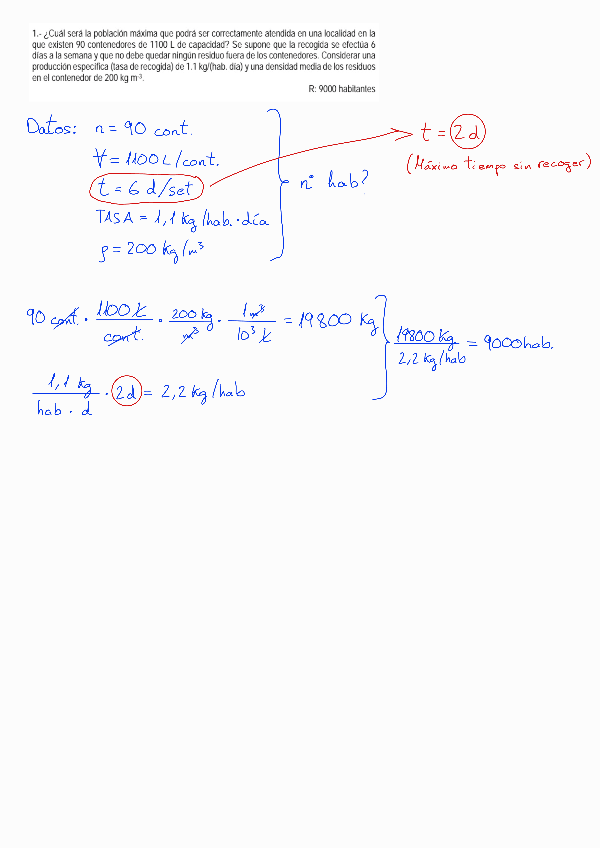 1.- ¿Cuál será la población máxima que podrá ser correctamente atendida en una localidad en la
que existen 90 contenedores de 1100 L de capacidad? Se supone que la recogida se efectúa 6
días a la semana y que no debe quedar ningún residuo fuera de los contenedores. Considerar una
producción específica (tasa de recogida) de 1.1 kg/(hab. día) y una densidad media de los residuos
en el contenedor de 200 kg m⁻³.
R: 9000 habitantes
Datos: n = 90 cont.
V = 1100 L/cont.
t = 6 d/set
TASA = 1,1 Kg/hab. · día
ρ = 200 Kg/m³
nº hab?
t = 2 d
(Máximo tiempo sin recoger)
90 cont. · 1100 L/cont. · 200 kg/m³ · 1 m³/10³ L = 19800 Kg
1,1 kg/hab · d · 2d = 2,2 Kg/hab
19800 Kg/2,2 Kg/hab = 9000 hab.